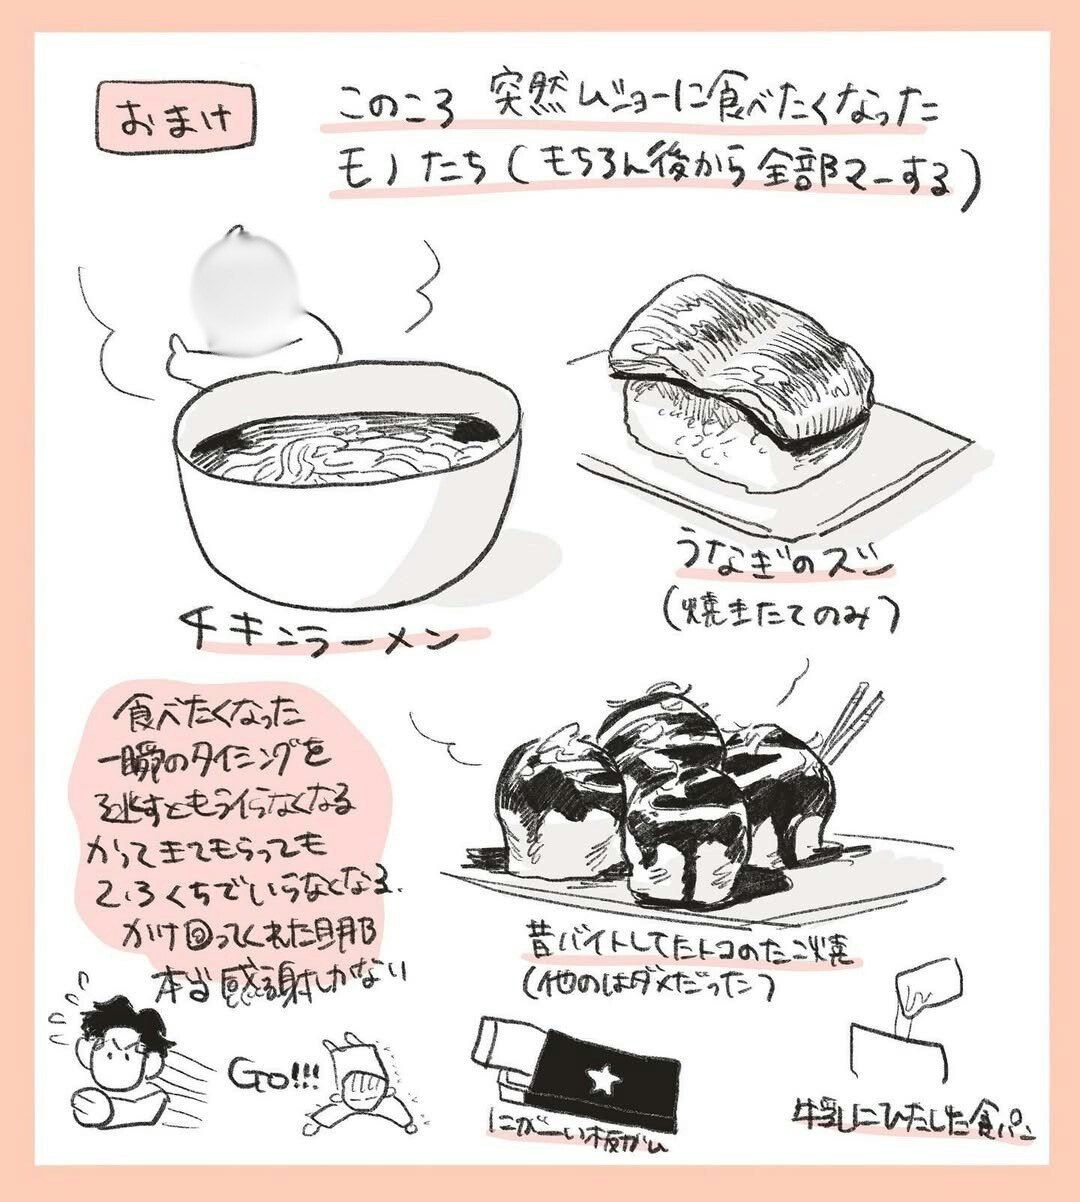 おまけ
このころ 突然ムショーに食べたくなった
モノたち(もちろん後から全部マーする)
チキンラーメン
うなぎのスシ
(焼きたてのみ)
食べたくなった
一瞬のタイミングを
逃すともうイらなくなる
かってきてもらっても
2,3くちでいらなくなる.
かけ回ってくれた旦那
本当感謝しかない
昔バイトしてたトコのたこ焼
(他のはダメだった)
Go!!!
にがーい板ガム
牛乳にひたした食パン